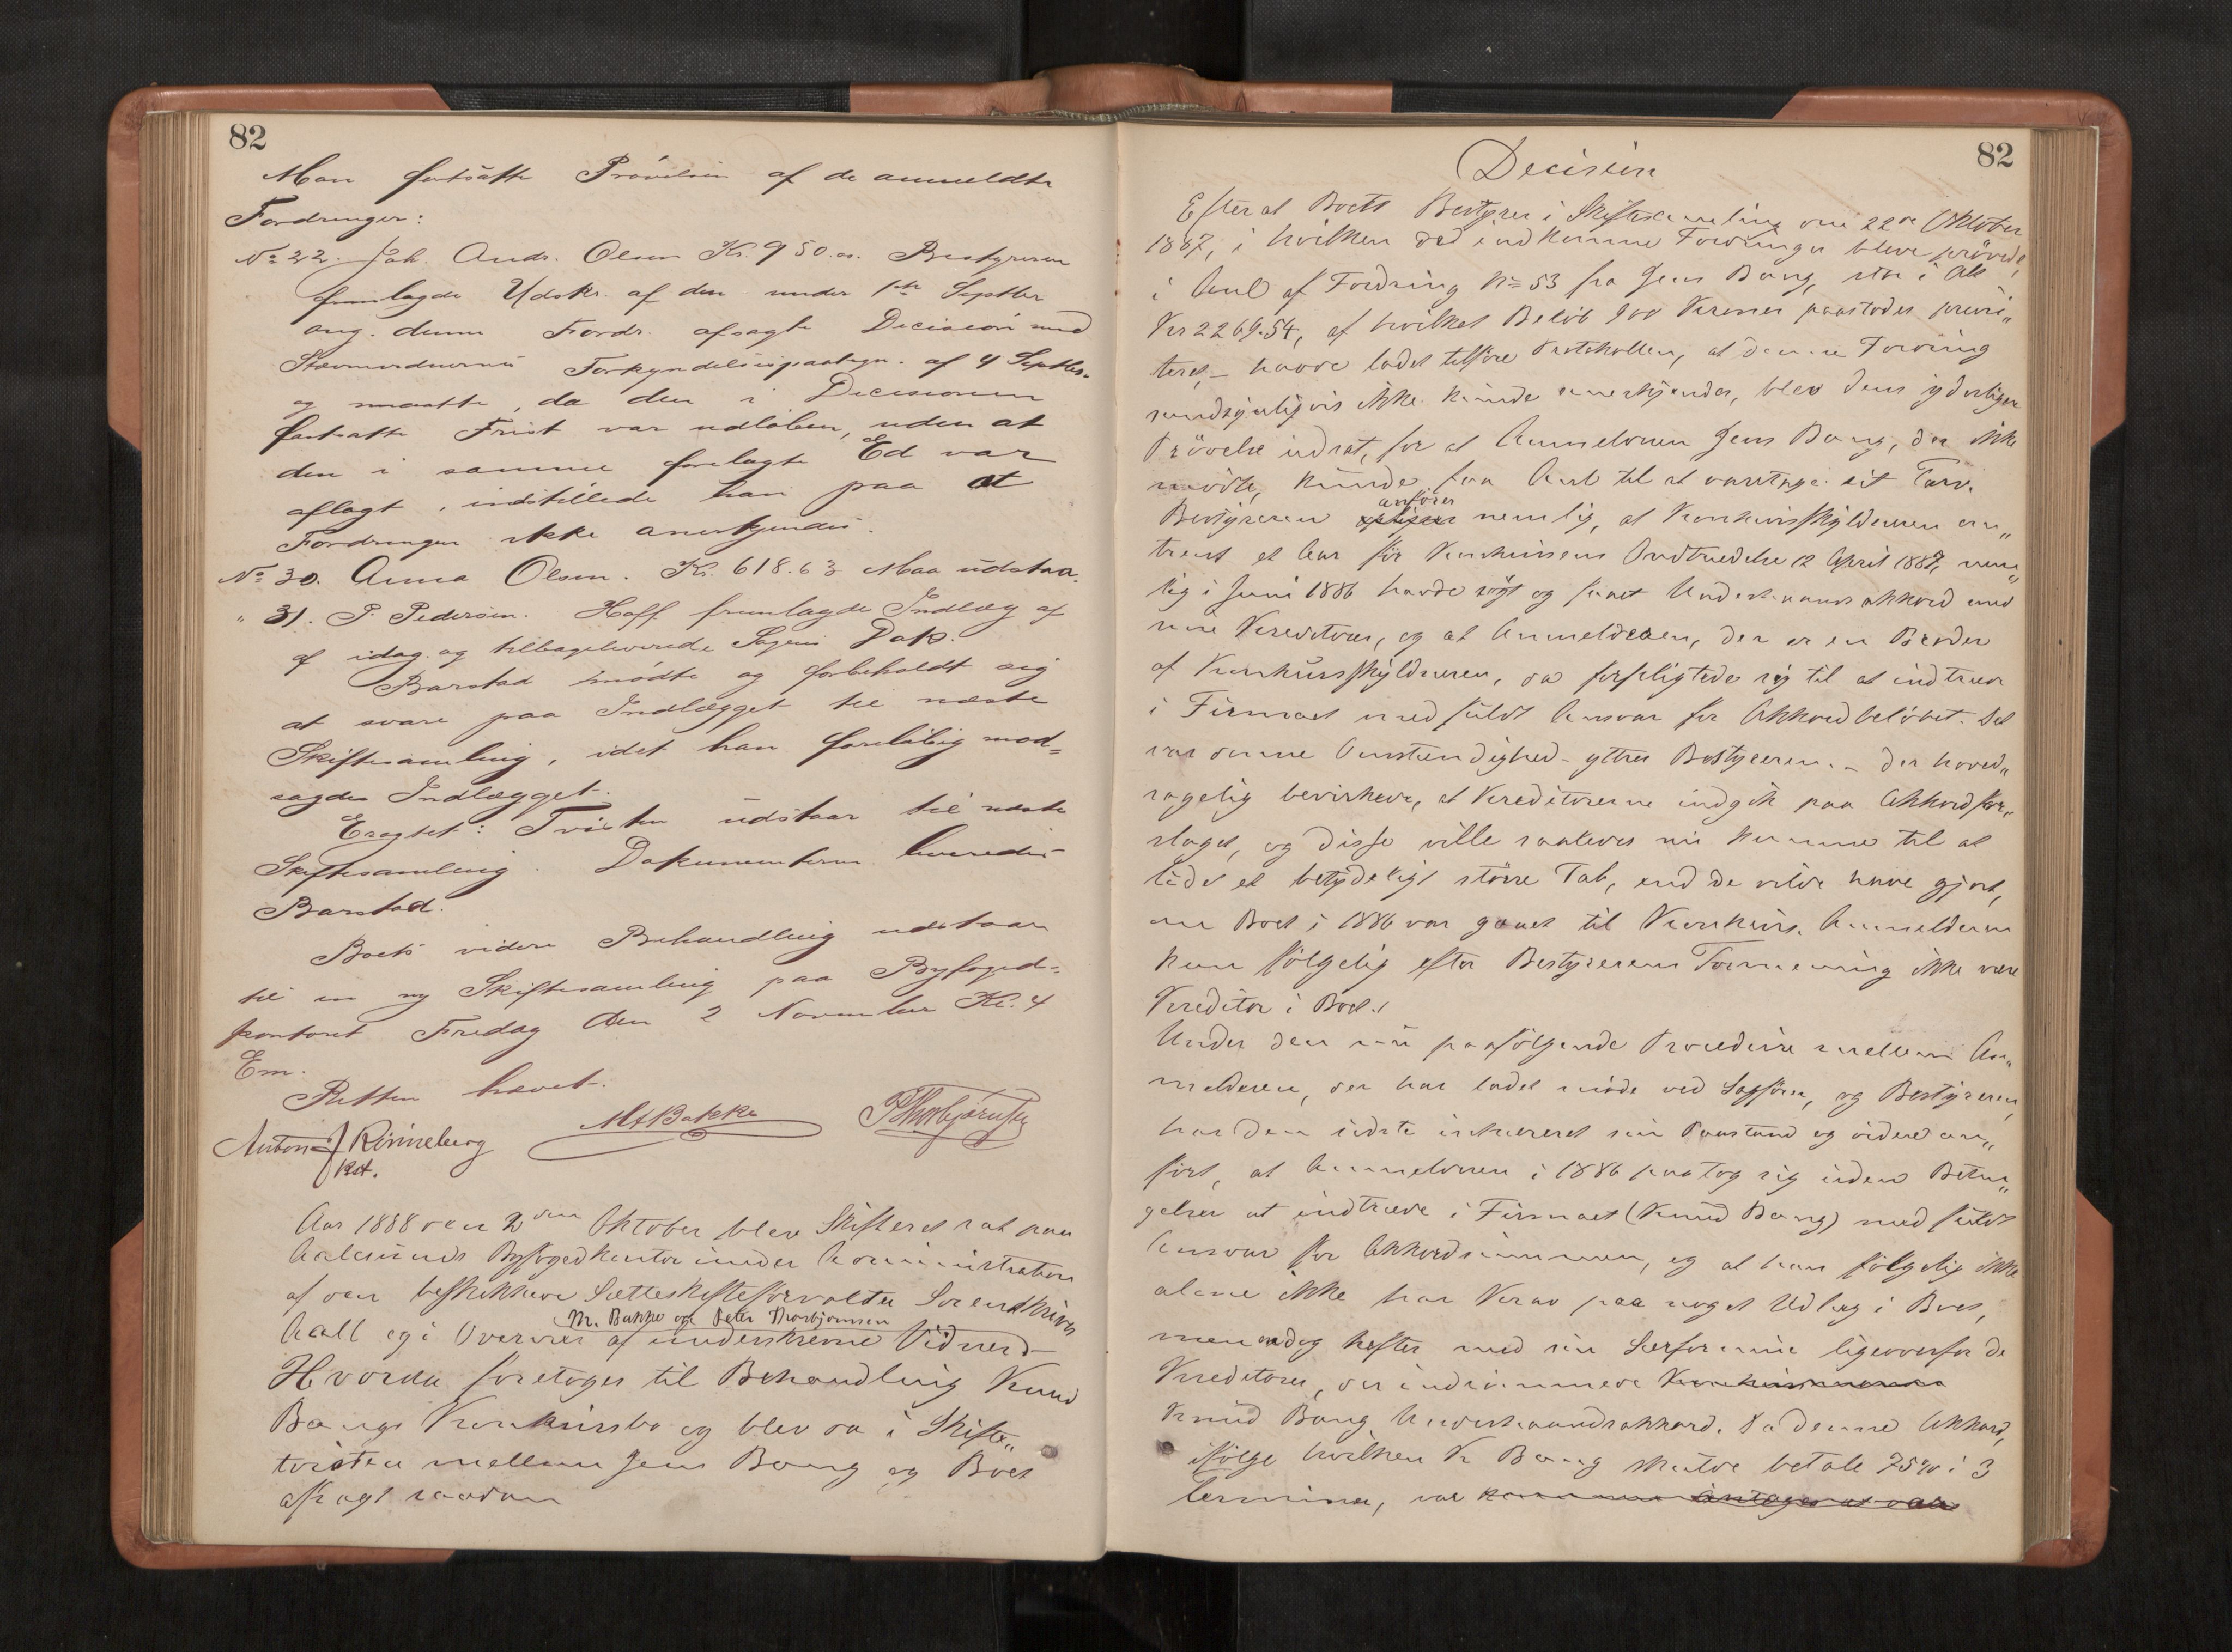 82
Man fortsatte Prøvelsen af de anmeldte
Fordringer:
No 22. Joh. Andr. Olsen Kr. 950.00. Bestyreren
fremlagde Udskr. af den under 1ste Septbr
ang. denne Fordr. afsagte Decision med
Stevnevidnernes Forkyndelsespaategn. af 4 Septbr.
og maatte, da den i Decisionen
fastsatte Frist var udløben, uden at
den i samme forelagte Ed var
aflagt, indstillede han paa at
Fordringen ikke anerkjendes.
No 30. Anna Olsen. Kr. 618.63 Maa udstaa.
" 31. P. Pedersen. Hoff fremlagde Indlæg af
af idag og tilbageleverede Sagens Dok.
Barstad mødte og forbeholdt sig
at svare paa Indlægget til næste
Skiftesamling, idet han foreløbig mod=
sagde Indlægget.
Eragtet: Tvisten udstaar til næste
Skiftesamling. Dokumenterne leveredes
Barstad.
Boets videre Behandling udstaar
til en ny Skiftesamling paa Byfoged=
kontoret Fredag den 2 November Kl. 4
Em.
Retten hævet.
Anton J Rønneberg
kst.
M Bakke
P Thorbjørnsen
Aar 1888 den 2den Oktober blev Skifteret sat paa
Aalesunds Byfogedkontor under Administration
af den beskikkede Sætteskifteforvalter Sorenskriver
M. Bakke og Peter Thorbjørnsen
Aall og i Overvær af underskrevne Vidner
Hvorda foretoges til Behandling Knud
Bangs Konkursbo og blev da i Skifte„
tvisten mellem Jens Bang og Boet
afsagt saadan
82
Decision
Efterat Boets Bestyrer i Skiftesamling den 22de Oktober
1887, i hvilken de indkomne Fordringer bleve prøvede,
i Anl af Fordring No 53 fra Jens Bang, stor i Alt
Kr 2269.54, af hvilket Beløb 900 Kroner paastodes priori„
teret, – havde ladet tilføre Protokollen, at denne Fordring
sandsynligvis ikke kunde anerkjendes, blev dens yderligere
Prøvelse udsat, for at Anmelderen Jens Bang, der ikke
mødte, kunde faa Anl til at varetage sit Tarv.
anfører
Bestyreren nemlig, at Konkursskyldneren om„
trent et Aar før Konkursens Indtrædelse 12 April 1887, nem„
lig i Juni 1886 havde søgt og faaet Underhaandsakkord med
sine Kreditorer, og at Anmelderen, der er en Broder
af Konkursskyldneren, da forpligtede sig til at indtræde
i Firmaet med fuldt Ansvar for Akkordbeløbet. Det
var denne Omstændighed – ytrer Bestyreren – der hoved„
sagelig bevirkede, at Kreditorerne indgik paa Akkordfor„
slaget, og disse ville saaledes nu komme til at
lide et betydeligt større Tab, end de vilde have gjort,
om Boet i 1886 var gaaet til Konkurs. Anmelderen
kan følgelig efter Bestyrerens Formening ikke være
Kreditor i Boet.
Under den nu paafølgende Procedure mellem An„
melderen, der har ladet møde ved Sagfører, og Bestyreren,
har den sidste sin Paastand og videre an„
ført, at Anmelderen i 1886 paatog sig uden Betin„
gelser at indtræde i Firmaet (Knud Bang) med fuldt
Ansvar for Akkordsummen, og at han følgelig ikke
alene ikke har Krav paa noget Udlæg i Boet,
men endog hefter med sin Særformue ligeoverfor de
Kreditorer, der indrømmede
Knud Bang Underhaandsakkord. Da denne Akkord,
ifølge hvilken K Bang skulde betale 75% i 3
Terminer, var